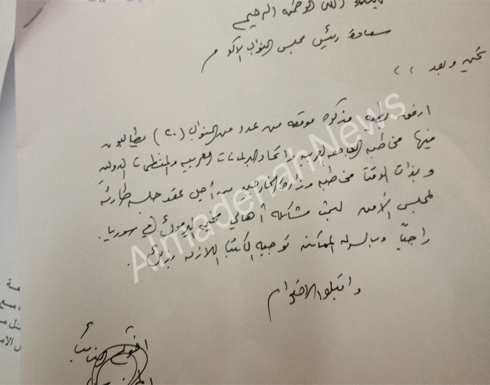 بسم الله الرحمن الرحيم
سعادة رئيس مجلس النواب الأكرم
تحية وبعد ،،
ارفق بطيه مذكرة موقعه من عدد من النواب (٢٠) يطالبون
فيها مخاطبة الجامعه العربيه واتحاد البرلمانات العربيه والمنظمات الدولية
وبذات الوقت مخاطبه وزارة الخارجيه من أجل عقد جلسه طارئه
لمجلس الأمن لبحث مشكله أهالي مخيم اليرموك في سوريا.
راجياً وبالسرعه الممكنه توجيه الكتب اللازمه بذلك.
واقبلوا الاحترام
AlmadenahNews